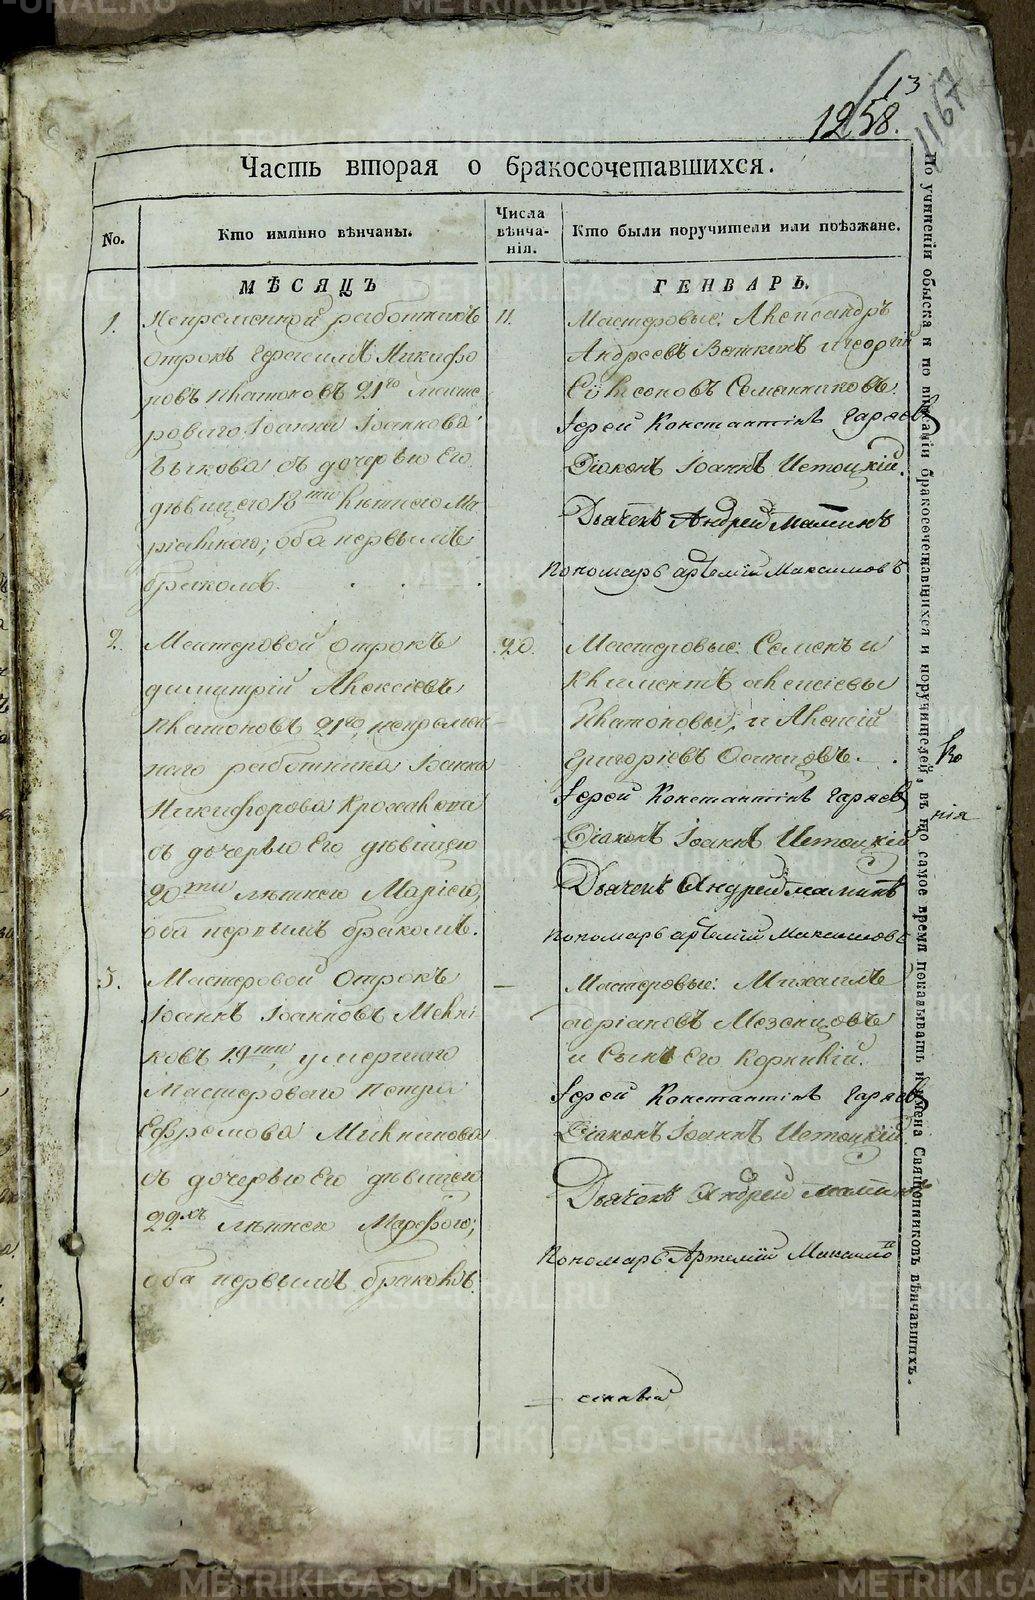 13
1258.
1167
Часть вторая о бракосочетавшихся.
No.
Кто имянно вѣнчаны.
Числа вѣнча-нія.
Кто были поручители или поѣзжане.
МѢСЯЦЪ
ГЕНВАРЬ.
1.
Непременной работникъ
отрокъ Герасимъ Никифо
ровъ Платоновъ 21го масте
роваго Іоанна Іоаннова
Бычкова съ дочерью Его
дѣвицею 18ти лѣтнею Ма
оба первымъ
бракомъ.
11.
Мастеровые: Александръ
Андреевъ Вяткинъ и Георгій
Іерей Константинъ Гаряевъ
Діаконъ Іоаннъ Истоцкій.
Дьячекъ Андрей Маминъ
Пономарь Артемій Максимовъ
2.
Мастеровой отрокъ
Димитрій Алексіевъ
Платоновъ 21го, непремен
наго работника Іоанна
Никифорова
съ дочерью Его дѣвицею
20ти лѣтнею Маріею,
оба первымъ бракомъ.
20.
Мастеровые: Семенъ и
Климентъ Алексіевы
Платоновы, и Алексій
Григоріевъ Осинцовъ.
Іерей Константинъ Гаряевъ
Діаконъ Іоаннъ Истоцкій
Дьячекъ Андрей Маминъ
Пономарь Артемій Максимовъ
3.
Мастеровой отрокъ
Іоаннъ Іоанновъ
ковъ 19ти, умершаго
Мастероваго Петра
Ефремова
съ дочерью Его дѣвицею
22хъ лѣтнею Марфою;
оба первымъ бракомъ.
—
Мастеровые: Михаилъ
Адріановъ Мезенцовъ
и Сынъ Его Корнилій.
Іерей Константинъ Гаряевъ
Діаконъ Іоаннъ Истоцкій
Дьячекъ Андрей Маминъ
Пономарь Артемій Максимовъ
По учиненіи обыска и по вѣнчаніи бракосочетавшихся и поручителей, въ то самое время показывать и имена Священниковъ вѣнчавшихъ.
нія
METRIKI.GASO-URAL.RU